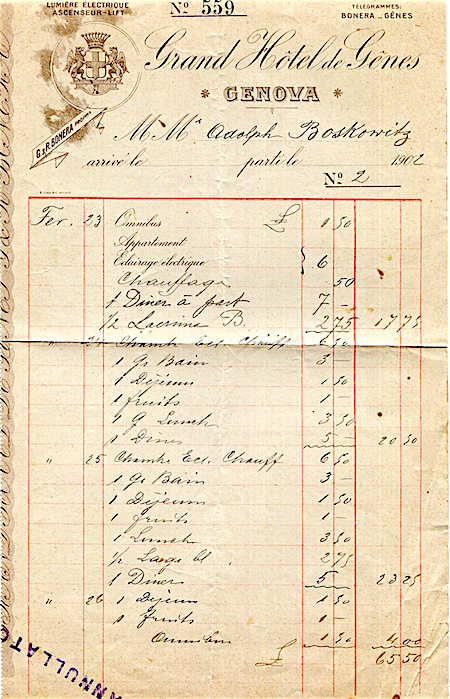 LUMIÈRE ÉLECTRIQUE
ASCENSEUR-LIFT
No 559
TÉLÉGRAMMES:
BONERA - GÊNES
Grand Hôtel de Gênes
* GENOVA *
G. & R. BONERA
M. Mr Adolph Boskowitz
arrivé le parti le 1902
No 2
Fer. 23 Omnibus £ 1 50
Appartement
Eclairage électrique } 6
Chauffage 50
1 Diner à part 7 —
1/2 Lacrima B. 2 75 17 75
" 24 Chambre Ecl. Chauff 6 50
1 Gr Bain 3 —
1 Déjeun 1 50
1 fruits 1 —
1 G Lunch 3 50
1 Diner 5 — 20 50
" 25 Chambre Ecl. Chauff 6 50
1 Gr Bain 3 —
1 Déjeun 1 50
1 fruits 1 —
1 Lunch 3 50
1/2 bl. 2 75
1 Diner 5 23 25
" 26 1 Déjeun 1 50
1 fruits 1 —
Omnibus 1 50 4 00
£ 65 50
ANNULLATO